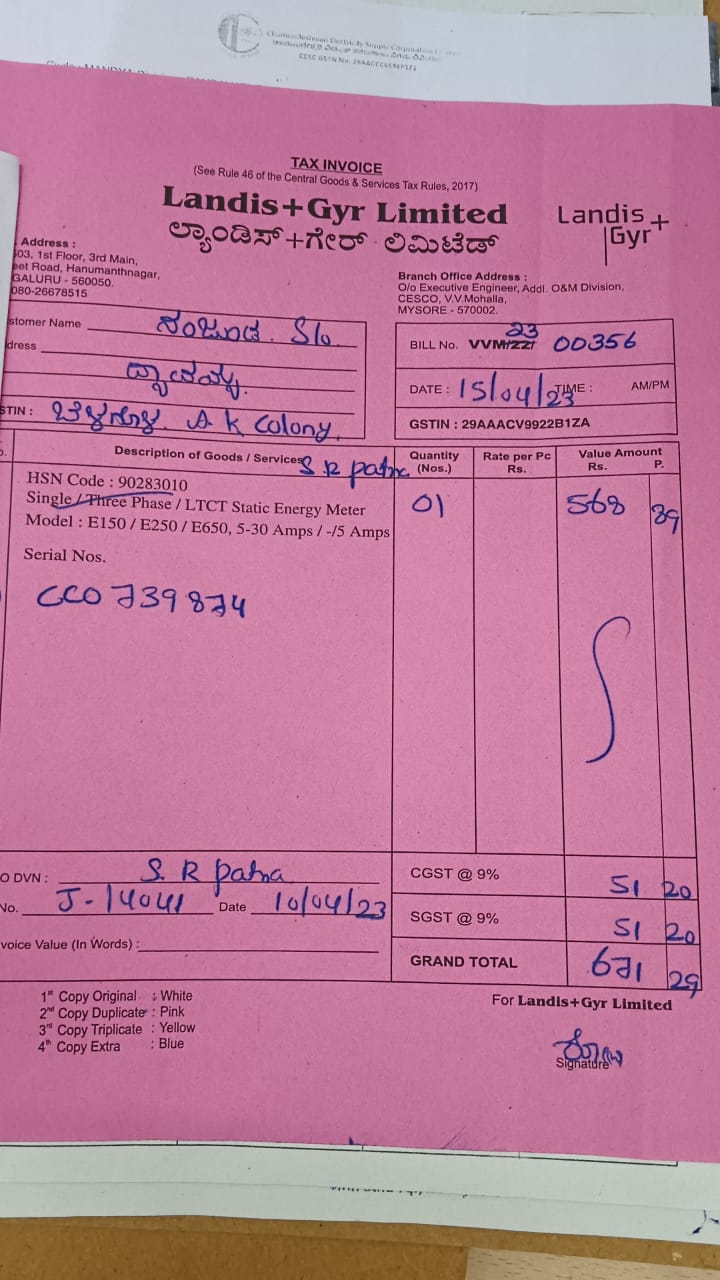 Chamundeshwari Electricity Supply Corporation
CESC GSTN No.
TAX INVOICE
(See Rule 46 of the Central Goods & Services Tax Rules, 2017)
Landis+Gyr Limited
ಲ್ಯಾಂಡಿಸ್+ಗೇರ್ ಲಿಮಿಟೆಡ್
Landis+
Gyr
Address :
503, 1st Floor, 3rd Main,
eet Road, Hanumanthnagar,
GALURU - 560050.
080-26678515
Branch Office Address :
O/o Executive Engineer, Addl. O&M Division,
CESCO, V.V.Mohalla,
MYSORE - 570002.
stomer Name S/o
dress
STIN : A K Colony
S R patna
BILL No. VVM/22/ 23 00356
DATE : 15/04/23 TIME : AM/PM
GSTIN : 29AAACV9922B1ZA
Description of Goods / Services
Quantity (Nos.)
Rate per Pc Rs.
Value Amount Rs. P.
HSN Code : 90283010
Single / Three Phase / LTCT Static Energy Meter
Model : E150 / E250 / E650, 5-30 Amps / -/5 Amps
01 568 39
Serial Nos.
CC0739874
O DVN : S. R patna
No. J-14041 Date 10/04/23
voice Value (In Words) :
CGST @ 9% 51 20
SGST @ 9% 51 20
GRAND TOTAL 671 29
1st Copy Original : White
2nd Copy Duplicate : Pink
3rd Copy Triplicate : Yellow
4th Copy Extra : Blue
For Landis+Gyr Limited
Signature